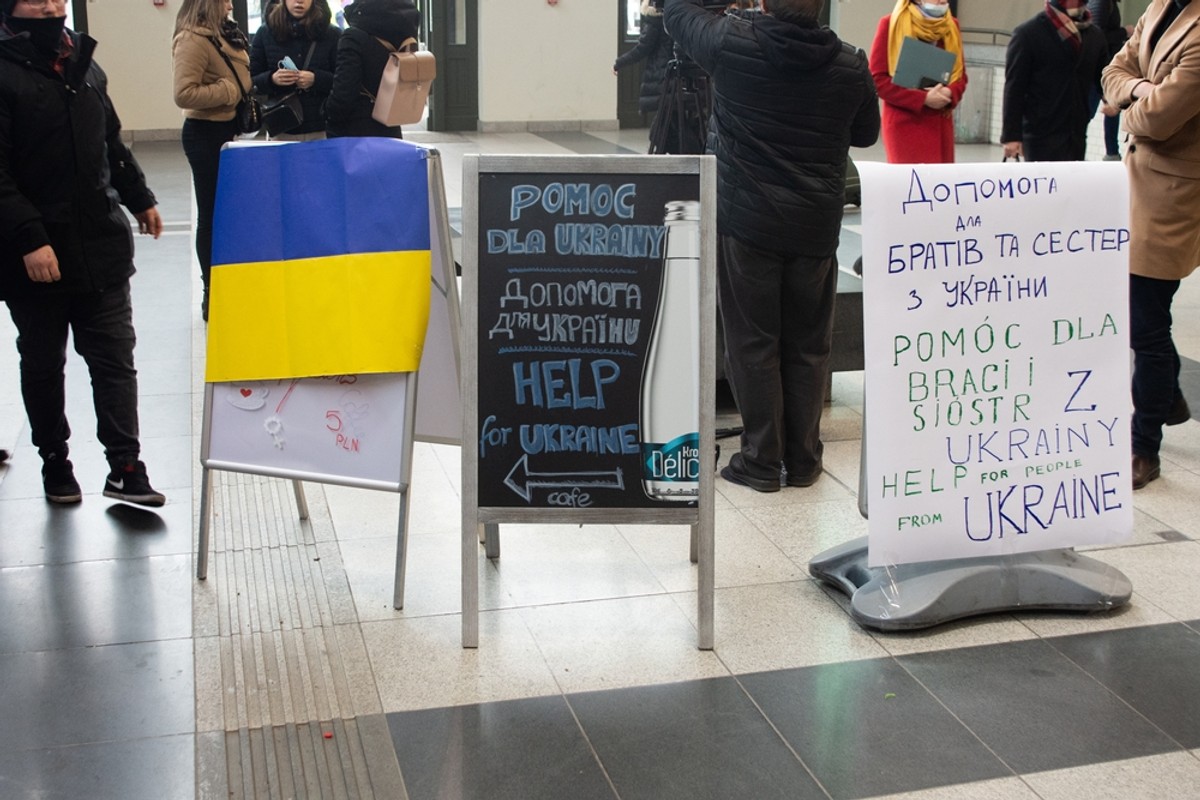 5
PLN
POMOC
DLA UKRAINY
ДОПОМОГА
ДЛЯ УКРАЇНИ
HELP
for UKRAINE
cafe
Kro
Délic
ДОПОМОГА
ДЛА
БРАТІВ ТА СЕСТЕР
З УКРАЇНИ
POMÓC DLA
BRACI I
SIÓSTR Z
UKRAINY
HELP FOR PEOPLE
FROM UKRAINE